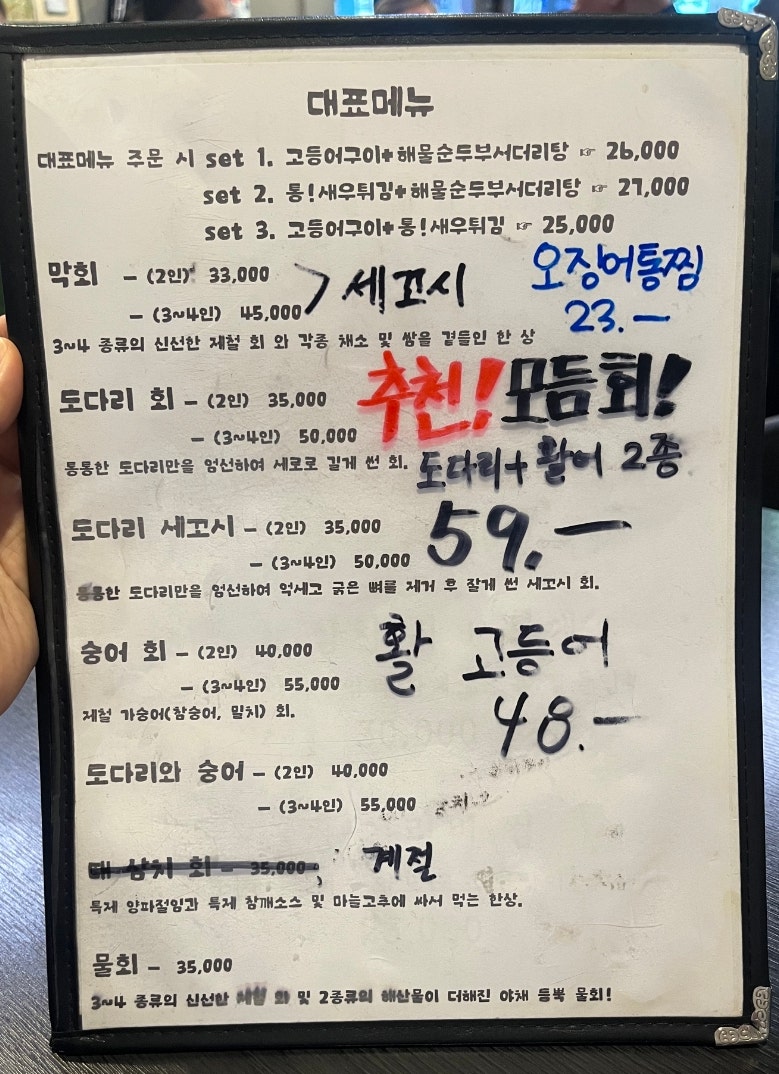 대표메뉴
대표메뉴 주문 시 set 1. 고등어구이+해물순두부서더리탕 ☞ 26,000
set 2. 통!새우튀김+해물순두부서더리탕 ☞ 27,000
set 3. 고등어구이+통!새우튀김 ☞ 25,000
막회 - (2인) 33,000
- (3~4인) 45,000
> 세꼬시
오징어통찜
23.-
3~4 종류의 신선한 제철 회 와 각종 채소 및 쌈을 곁들인 한 상
도다리 회 - (2인) 35,000
- (3~4인) 50,000
추천! 모듬회!
통통한 도다리만을 엄선하여 세로로 길게 썬 회.
도다리+활어 2종
59.-
도다리 세꼬시 - (2인) 35,000
- (3~4인) 50,000
통통한 도다리만을 엄선하여 억세고 굵은 뼈를 제거 후 잘게 썬 세꼬시 회.
숭어 회 - (2인) 40,000
- (3~4인) 55,000
활 고등어
48.-
제철 가숭어(참숭어, 밀치) 회.
도다리와 숭어 - (2인) 40,000
- (3~4인) 55,000
대 삼치 회 - 35,000
계절
특제 양파절임과 특제 참깨소스 및 마늘고추에 싸서 먹는 한상.
물회 - 35,000
3~4 종류의 신선한 및 2종류의 해산물이 더해진 야채 듬뿍 물회!